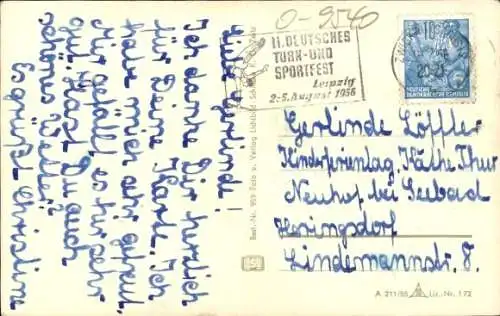 0-2540
II. DEUTSCHES
TURN- UND
SPORTFEST
Leipzig
2.-5. August 1956
10
DEUTSCHE
DEMOKRATISCHE REPUBLIK
Liebe Gerlinde!
Ich danke Dir herzlich
für Deine Karte. Ich
habe mich sehr gefreut.
Mir gefällt es hir sehr
gut. Hast Du auch
schönes Wetter?
Es grüßt Christine
Best.-Nr. 959 Foto u. Verlag Lichtbild
Gerlinde Löffler
Kinderferienlag. Käthe Thur
Neuhof bei Seebad
Heringsdorf
Lindemannstr. 8.
A 211/55 Liz.-Nr. 172